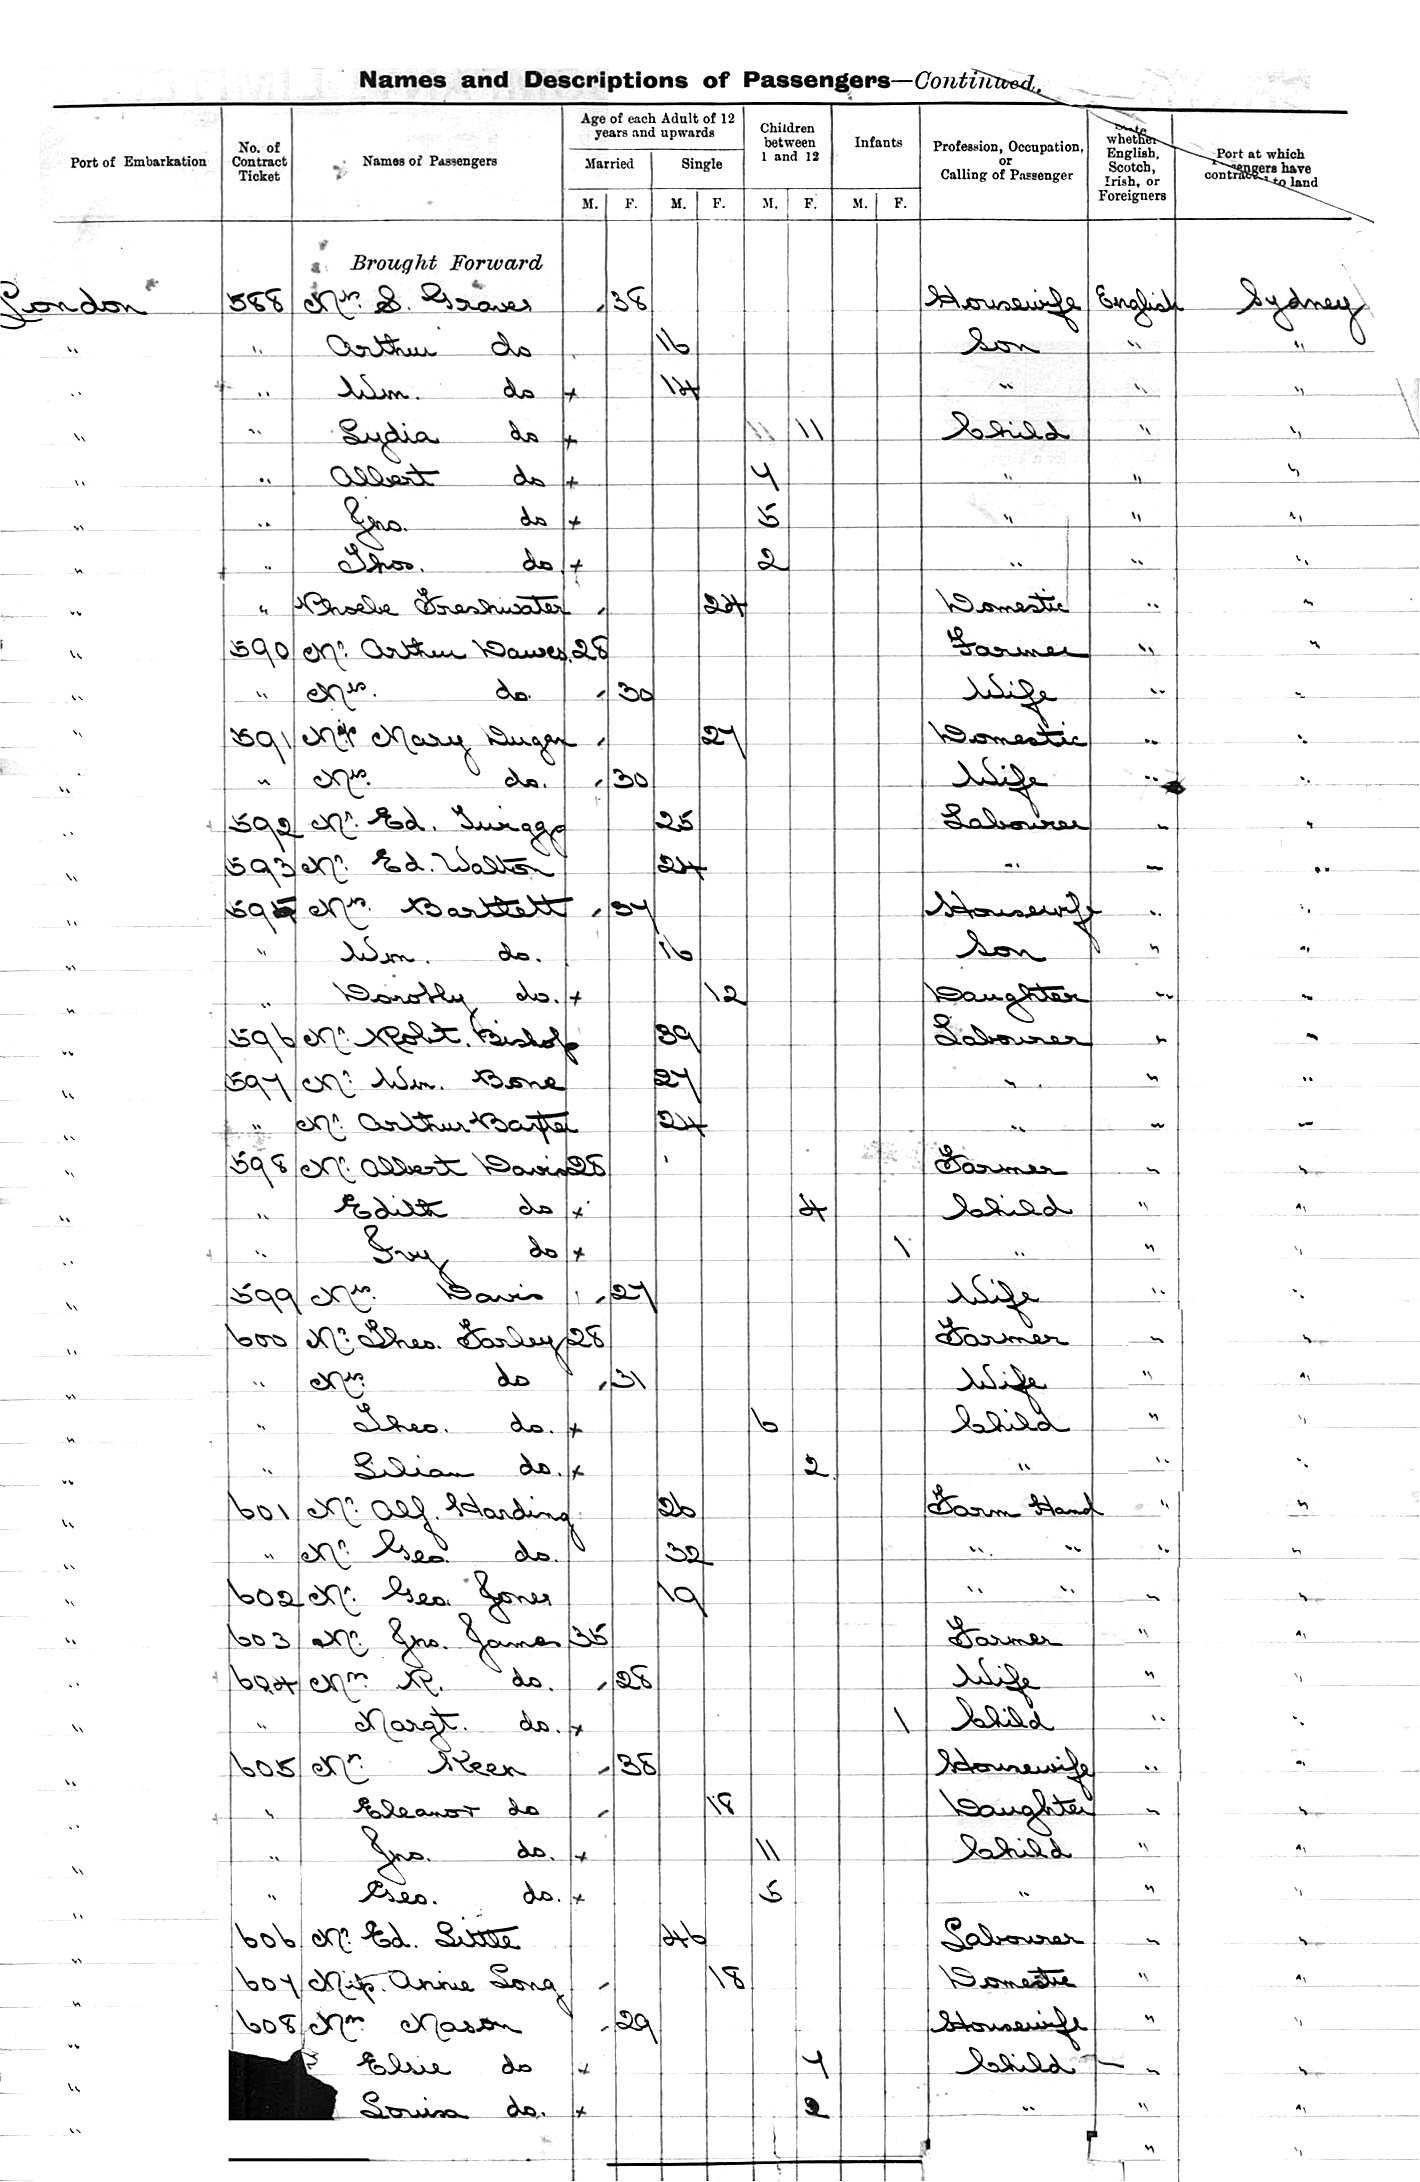 Names and Descriptions of Passengers—Continued.
Port of Embarkation No. of Contract Ticket Names of Passengers Age of each Adult of 12 years and upwards Married M. F. Single M. F. Children between 1 and 12 M. F. Infants M. F. Profession, Occupation, or Calling of Passenger State whether English, Scotch, Irish, or Foreigners Port at which Passengers have contracted to land
Brought Forward
London 588 Mrs. S. Graves 38 Housewife English Sydney
" " Arthur do 16 Son " "
" " Wm. do x 14 " " "
" " Lydia do x 11 11 Child " "
" " Albert do x 7 " " "
" " Jno. do x 5 " " "
" " Thos. do x 2 " " "
" " Phoebe Freshwater 24 Domestic " "
" 590 Mr. Arthur Dawes 28 Farmer " "
" " Mrs. do. 30 Wife " "
" 591 Mary Dugan 27 Domestic " "
" " Mrs. do. 30 Wife " "
" 592 Mr. Ed. Twigg 25 Labourer " "
" 593 Mr. Ed. Walton 24 " " "
" 595 Mrs. Bartlett 37 Housewife " "
" " Wm. do. 16 Son " "
" " Dorothy do. x 12 Daughter " "
" 596 Mr. Robt. Bishop 39 Labourer " "
" 597 Mr. Wm. Bone 27 " " "
" " Mr. Arthur Baxter 24 " " "
" 598 Mr. Albert Davis 28 Farmer " "
" " Edith do x 4 Child " "
" " Ivy do x 1 " " "
" 599 Mrs. Davis 27 Wife " "
" 600 Mr. Theo. Farley 28 Farmer " "
" " Mrs. do 31 Wife " "
" " Theo. do. x 6 Child " "
" " Lilian do. x 2 " " "
" 601 Mr. Alf. Harding 26 Farm Hand " "
" " Mr. Geo. do. 32 " " " "
" 602 Mr. Geo. Jones 19 " " " "
" 603 Mr. Jno. James 35 Farmer " "
" 604 Mrs R. do. 28 Wife " "
" " Margt. do. x 1 Child " "
" 605 Mrs Keen 38 Housewife " "
" " Eleanor do 18 Daughter " "
" " Jno. do. x 11 Child " "
" " Geo. do. x 5 " " "
" 606 Mr. Ed. Little 46 Labourer " "
" 607 Miss. Annie Long 18 Domestic " "
" 608 Mrs Mason 29 Housewife " "
" Elsie do x 7 Child " "
" Louisa do. x 2 " " "
" " "